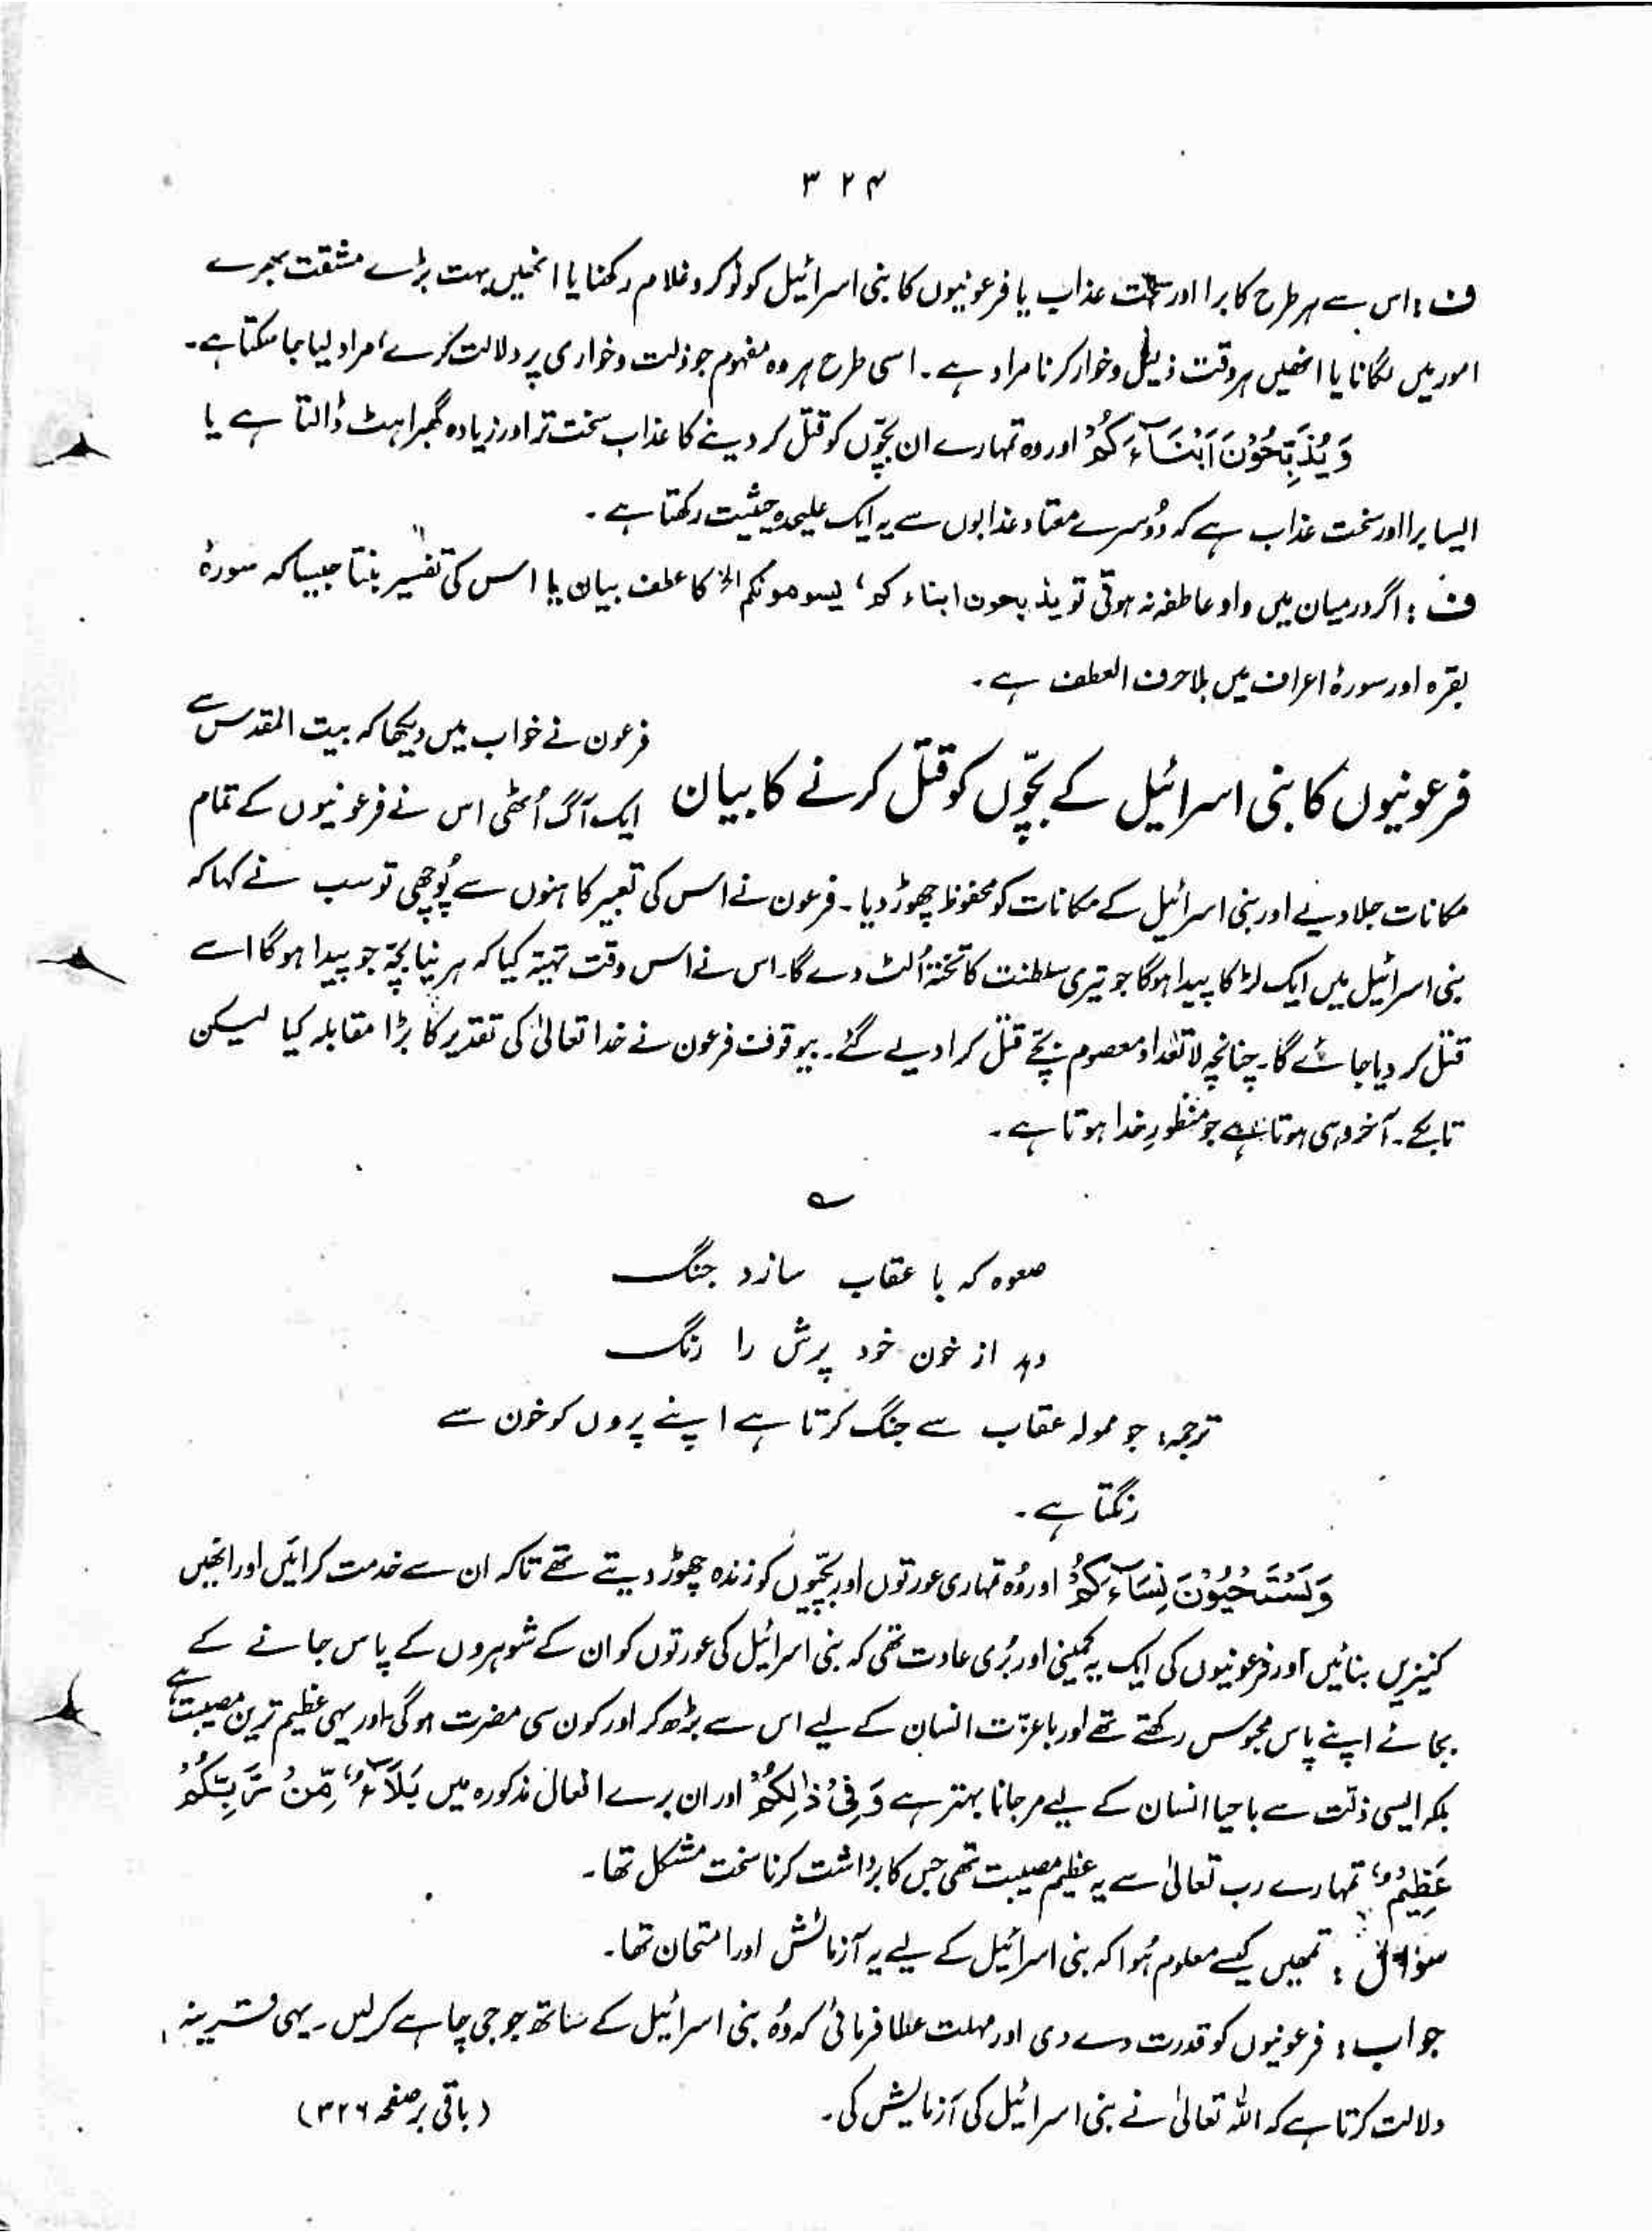 ۳۲۴
ف : اس سے ہر طرح کا برا اور سخت عذاب یا فرعونیوں کا بنی اسرائیل کو نوکر و غلام رکھنا یا انھیں بہت بڑے مشقت بھرے
امور میں لگانا یا انھیں ہر وقت ذلیل و خوار کرنا مراد ہے۔ اسی طرح ہر وہ مفہوم جو ذلت و خواری پر دلالت کرے، مراد لیا جا سکتا ہے۔
وَ یُذَبِّحُوْنَ اَبْنَآءَكُمْ اور وہ تمہارے ان بچّوں کو قتل کر دینے کا عذاب سخت تر اور زیادہ گھبراہٹ ڈالتا ہے یا
ایسا برا اور سخت عذاب ہے کہ دُوسرے معتاد عذابوں سے یہ ایک علیحدہ حیثیت رکھتا ہے۔
ف : اگر درمیان میں واو عاطفہ نہ ہوتی تو یذبحون ابناءکم، یسومونکم الخ کا عطف بیان یا اس کی تفسیر بنتا جیسا کہ سورۂ
بقرہ اور سورۂ اعراف میں بلا حرف العطف ہے۔
فرعونیوں کا بنی اسرائیل کے بچّوں کو قتل کرنے کا بیان
فرعون نے خواب میں دیکھا کہ بیت المقدس سے
ایک آگ اُٹھی اس نے فرعونیوں کے تمام
مکانات جلا دیے اور بنی اسرائیل کے مکانات کو محفوظ چھوڑ دیا۔ فرعون نے اس کی تعبیر کاہنوں سے پُوچھی تو سب نے کہا کہ
بنی اسرائیل میں ایک لڑکا پیدا ہوگا جو تیری سلطنت کا تختہ اُلٹ دے گا۔ اس نے اس وقت تہیّہ کیا کہ ہر نیا بچّہ جو پیدا ہوگا اسے
قتل کر دیا جائے گا۔ چنانچہ لا تعداد معصوم بچّے قتل کرا دیے گئے۔ بیوقوف فرعون نے خدا تعالیٰ کی تقدیر کا بڑا مقابلہ کیا لیکن
تا بکے۔ آخر وہی ہوتا ہے جو منظورِ خدا ہوتا ہے۔
؎
صعوہ کہ با عقاب سازد جنگ
دہد از خون خود پرش را رنگ
ترجمہ: جو ممولہ عقاب سے جنگ کرتا ہے اپنے پروں کو خون سے
رنگتا ہے۔
وَیَسْتَحْیُوْنَ نِسَآءَكُمْ اور وُہ تمہاری عورتوں اور بچّیوں کو زندہ چھوڑ دیتے تھے تاکہ ان سے خدمت کرائیں اور انھیں
کنیزیں بنائیں اور فرعونیوں کی ایک یہ کمینی اور بُری عادت تھی کہ بنی اسرائیل کی عورتوں کو ان کے شوہروں کے پاس جانے کے
بجائے اپنے پاس محبوس رکھتے تھے اور باعزّت انسان کے لیے اس سے بڑھ کر اور کون سی مضرت ہو گی اور یہی عظیم ترین مصیبت ہے
بلکہ ایسی ذلّت سے باحیا انسان کے لیے مر جانا بہتر ہے وَ فِیْ ذٰلِكُمْ اور ان برے افعال مذکورہ میں بَلَآءٌ مِّنْ رَّبِّكُمْ
عَظِیْمٌ تمہارے رب تعالیٰ سے یہ عظیم مصیبت تھی جس کا برداشت کرنا سخت مشکل تھا۔
سوال : تمھیں کیسے معلوم ہُوا کہ بنی اسرائیل کے لیے یہ آزمائش اور امتحان تھا۔
جواب : فرعونیوں کو قدرت دے دی اور مہلت عطا فرمائی کہ وُہ بنی اسرائیل کے ساتھ جو جی چاہے کر لیں۔ یہی قرینہ
دلالت کرتا ہے کہ اللہ تعالیٰ نے بنی اسرائیل کی آزمایش کی۔ (باقی بر صفحہ ۳۲۶)